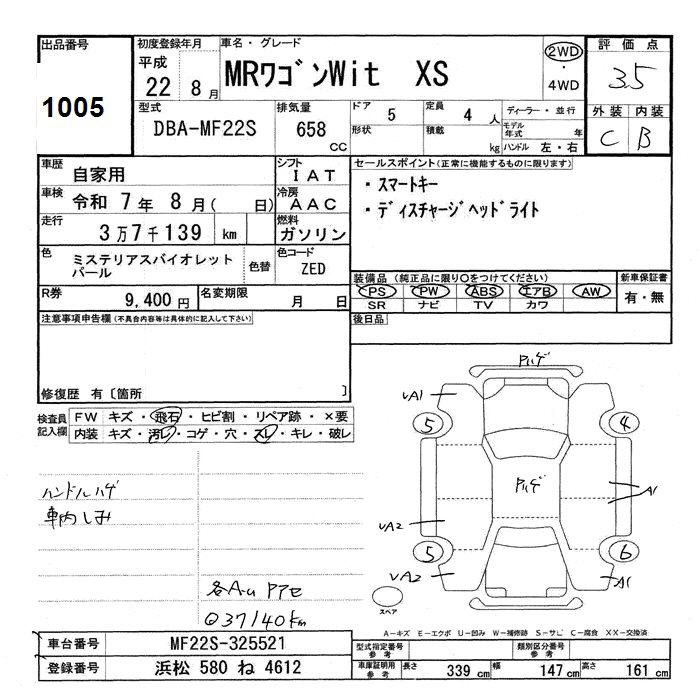 出品番号 初度登録年月 車名・グレード 評価点
1005 平成 22 8月 MRワゴンWit XS 2WD・4WD 3.5
型式 排気量 ドア 5 定員 4 人 ディーラー・並行 外装 内装
DBA-MF22S 658 CC 形状 積載 kg モデル年式 年 ハンドル 左・右 C B
車歴 自家用 シフト IAT セールスポイント(正常に機能するものに限ります)
車検 令和 7年 8月( 日) 冷房 AAC ・スマートキー
走行 3万7千139 km 燃料 ガソリン ・ディスチャージヘッドライト
色 ミステリアスバイオレットパール 色替 色コード ZED
装備品(純正品に限り○をつけてください) 新車保証書
R券 9,400円 名変期限 月 日 PS PW ABS エアB AW 有・無
SR ナビ TV カワ
注意事項申告欄(不具合内容等は具体的に記入して下さい) 後日品
修復歴 有〔箇所 〕
検査員記入欄 FW キズ・飛石・ヒビ割・リペア跡・×要
内装 キズ・汚レ・コゲ・穴・スレ・キレ・破レ
Pハゲ
uA1
5 4
ハンドルハゲ
車内しみ
Pハゲ
A1
uA2
5 6
uA2 A1
各A・u Pアセ
Q37140km
スペア
A-キズ E-エクボ U-凹み W-補修跡 S-サビ C-腐食 XX-交換済
車台番号 MF22S-325521 型式指定番号 参考 類別区分番号 参考
登録番号 浜松 580 ね 4612 車庫証明用 参考 長さ 339 cm 幅 147 cm 高さ 161 cm